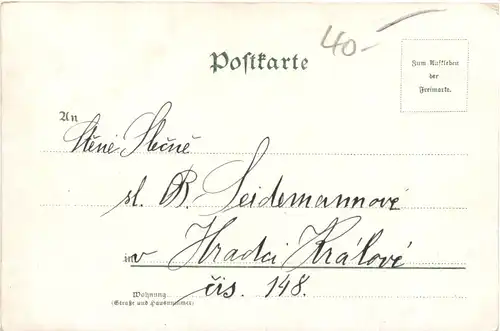 40-
Postkarte
Zum Aufkleben
der
Freimarke.
An
Ctěné Slečně
sl. B. Seidemannové
in v Hradci Králové
Wohnung
(Straße und Hausnummer)
čís. 148.